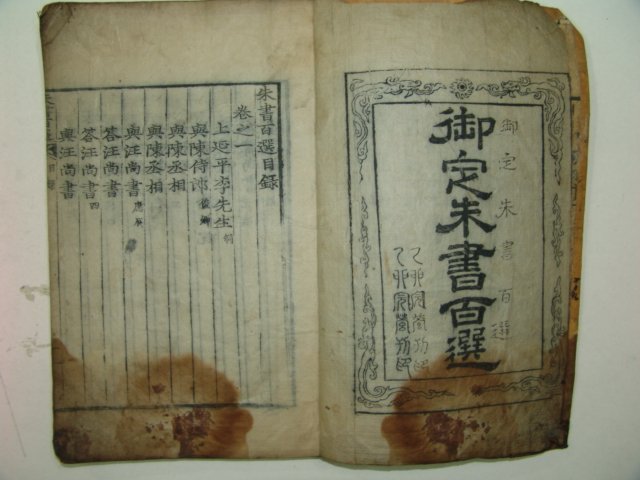 御定朱書百選
御定朱書百選
乙卯完營刊印
乙卯完營刊印
朱書百選目錄
卷之一
上延平李先生 侗
與陳侍郎 俊卿
與陳丞相
與陳丞相
與汪尚書 應辰
答汪尚書
答汪尚書 四
與汪尚書